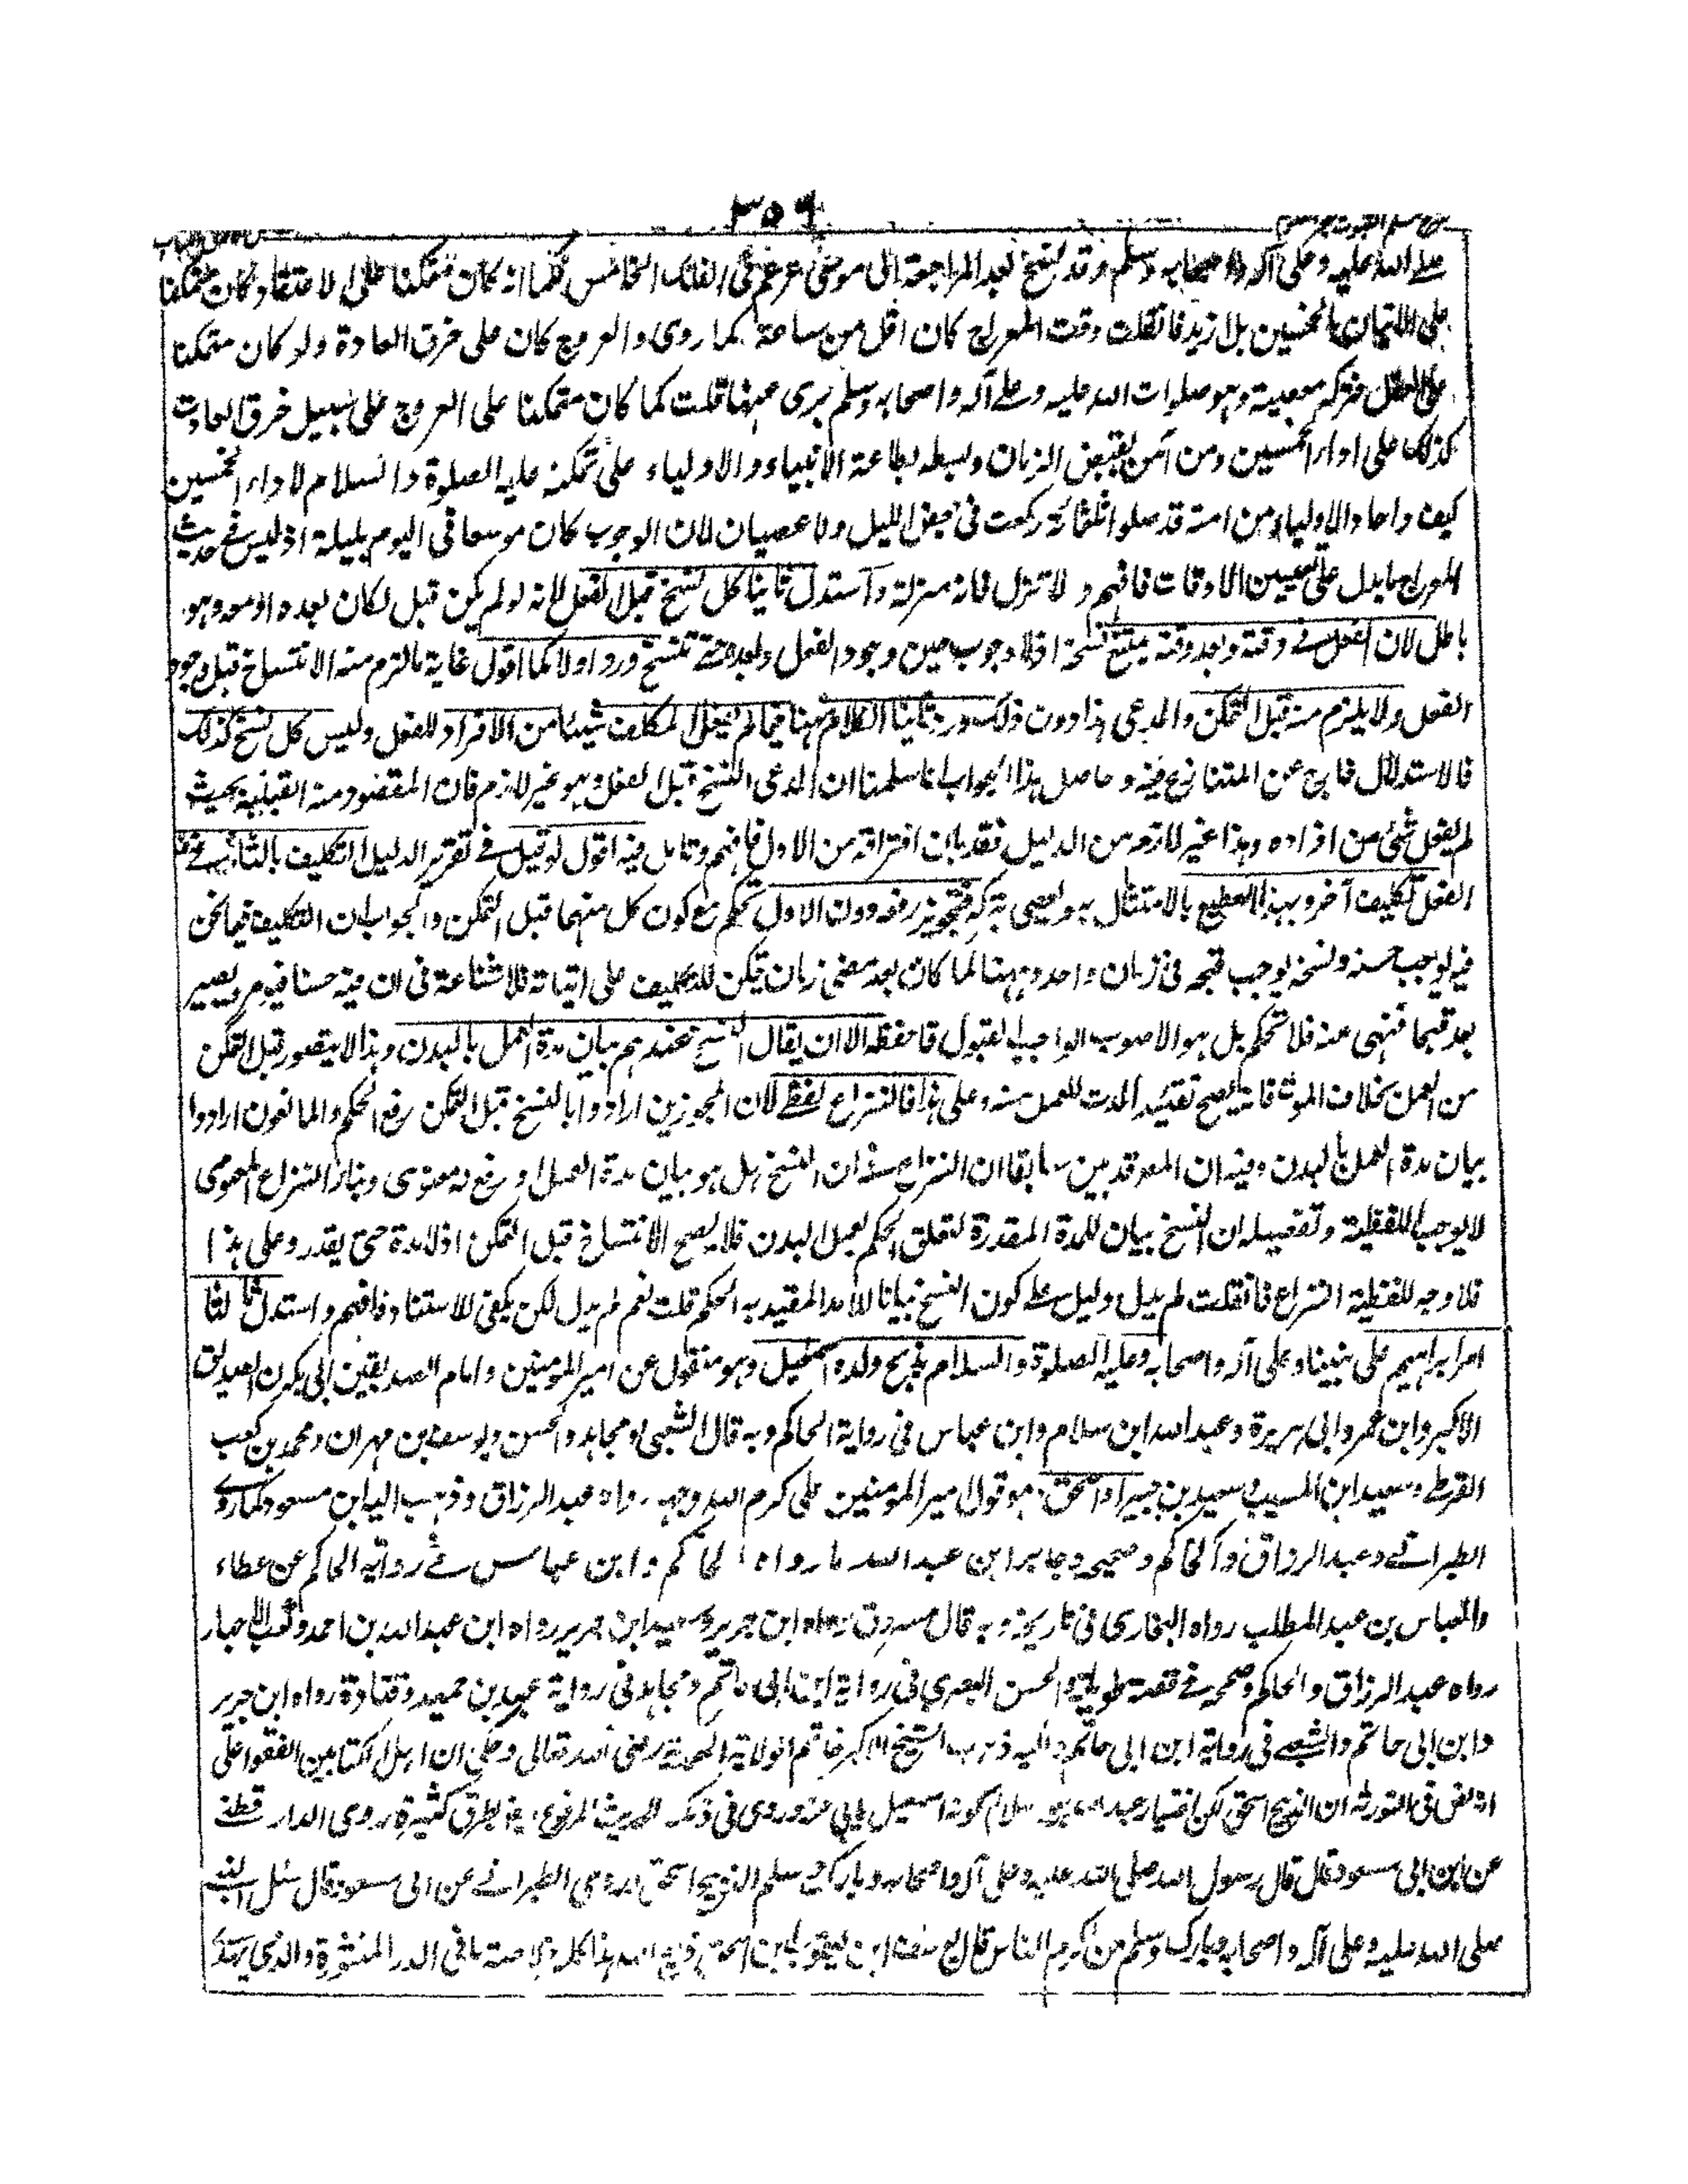 ٣٥٦
صلے الله عليه وعلى آله واصحابه وسلم وقد نسخ بعد المراجعة الى موسى في الفلك الخامس كما انه كان متمكنا على الاعتقاد كان متمكنا
على الاتيان بالخمسين بل ازيد فانقلت وقت المعراج كان اقل من ساعة كما روى والعروج كان على خرق العادة ولو كان متمكنا
على الفعل فتركه معصية وهو صلوات الله عليه وعلے آله واصحابه وسلم برى عنها قلت كما كان متمكنا على العروج على سبيل خرق العادت
كذلك على اداء الخمسين ومن آمن بقبض الزمان وبسطه لطاعة الانبياء والاولياء على تمكنه عليه الصلوة والسلام لاداء الخمسين
كيف واحاد الاولياء من امته قد صلوا ثلثمائة ركعت فى بعض الليل ولا عصيان لان الوجوب كان موسعا فى اليوم بليلة اذ ليس فے حديث
المعراج ما يدل على تعيين الاوقات فافهم ولا تزل فانه مزلة واستدل ثانيا كل نسخ قبل الفعل لانه لو لم يكن قبل لكان بعده او معه وهو
باطل لان الفعل فے وقته وبعد وقته يمتنع نسخه اذ لا وجوب حين وجود الفعل وبعده حتے تنسخ ورد اولا كما اقول غاية ما لزم منه الانتساخ قبل وجود
الفعل ولا يلزم منه قبل التمكن والمدعى هذا دون ذلك ورد ثانيا الكلام ههنا فيما لم يفعل المكلف شيئا من الافراد للفعل وليس كل نسخ كذلك
فالاستدلال خارج عن المتنازع فيه وحاصل هذا الجواب انا سلمنا ان المدعى النسخ قبل الفعل وهو غير لازم فان المقصود منه القبلية بحيث
لم يفعل شئ من افراده وهذا غير لازم من الدليل فقد بان افتراقه من الاول فافهم وتامل فيه اقول لو قيل فے تقرير الدليل التكليف بالثانى
الفعل تكليف آخر وبهذا المطيع بالامتثال به ويعصى بتركه فتجويز رفعه دون الاول تحكم مع كون كل منهما قبل التمكن والجواب ان التكليف فيما نحن
فيه يوجب حسنه ونسخه يوجب قبحه فى زمان واحد وههنا لما كان بعد مضى زمان يمكن للتكليف على اتيانه فلا شناعة فى ان فيه حسنا فيومر ويصير
بعد قبيحا فنهى عنه فلا تحكم بل هو الاصوب الواجب القبول فاحفظه الا ان يقال النسخ عندهم بيان مدة العمل بالبدن وهذا لا يتصور قبل التمكن
من العمل بخلاف الموت فانه يصح تقييد المدت للعمل منه وعلى هذا فالنزاع لفظے لان المجوزين ارادوا بالنسخ قبل التمكن رفع الحكم والمانعون ارادوا
بيان مدة العمل بالبدن وفيه ان المص قد بين سابقا ان النزاع فے ان النسخ هل هو بيان مدة العمل او رفع له معنوى وبناء النزاع المعنوى
لا يوجب اللفظية وتفصيله ان النسخ بيان للمدة المقدرة لتعلق الحكم بعمل البدن فلا يصح الانتساخ قبل التمكن اذ لا مدة حتى يقدر وعلى هذا
فلا وجه للفظية النزاع فانقلت لم يدل دليل علے كون النسخ بيانا للامد المقيد به الحكم قلت نعم لم يدل لكن يكفى للاستناد فافهم واستدل ثالثا
امر ابراهيم على نبينا وعلى آله واصحابه وعليه الصلوة والسلام بذبح ولده اسمعيل وهو منقول عن امير المومنين وامام الصديقين ابى بكرن الصديق
الاكبر وابن عمر وابى هريرة وعبد الله ابن سلام وابن عباس فى رواية الحاكم وبه قال الشعبى ومجاهد والحسن ويوسف بن مهران ومحمد بن كعب
القرظے وسعيد ابن المسيب وسعيد بن جبير او اسحق هو قول امير المومنين على كرم الله وجهه رواه عبد الرزاق وذهب اليه ابن مسعود كما روے
الطبرانے وعبد الرزاق والحاكم وصححه وجابر ابن عبد الله ما رواه الحاكم وابن عباس فے رواية الحاكم عن عطاء
والعباس بن عبد المطلب رواه البخارى فى تاريخه وبه قال مسروق رواه ابن جرير وسعيد ابن جبير رواه ابن عبد الله بن احمد وكعب الاحبار
رواه عبد الرزاق والحاكم وصححه فے قصة طويلة والحسن البصرى فى رواية ابن ابى حاتم ومجاهد فى رواية عبد بن حميد وقتادة رواه ابن جرير
وابن ابى حاتم والشعبے فى رواية ابن ابى حاتم واليه ذهب الشيخ الاكبر خاتم الولاية المحمدية رضى الله تعالى وحكى ان اهل الكتابين اتفقوا على
انه نص فى التورىة ان الذبيح اسحق لكن اختيار عبد الله بن سلام كونه اسمعيل يابى عنه وروى فى ذكر الحديث المرفوع بطرق كثيرة روى الدار قطنے
عن ابن ابى مسعود قال قال رسول الله صلى الله عليه وعلى آله واصحابه وبارك وسلم الذبيح اسحق وروى الطبرانے عن ابى مسعود قال سئل النبے
صلى الله عليه وعلى آله واصحابه وبارك وسلم من اكرم الناس قال يوسف ابن يعقوب ابن اسحق ذبيح الله هذا كله خلاصة ما فى الدر المنثورة والذى